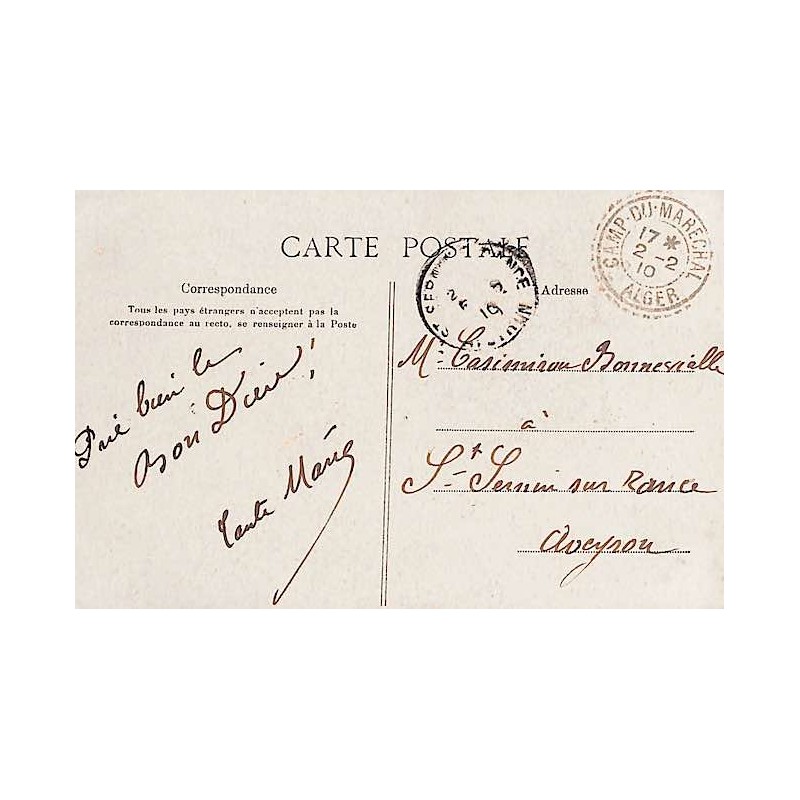 CARTE POSTALE
Correspondance
Tous les pays étrangers n'acceptent pas la
correspondance au recto, se renseigner à la Poste
Prie bien le
bon Dieu!
Tante Marie
Adresse
CAMP-DU-MARÉCHAL
17 *
2 -2
10
ALGER
Casimirou Bonnevialle
à
St Sernin sur Rance
Aveyron